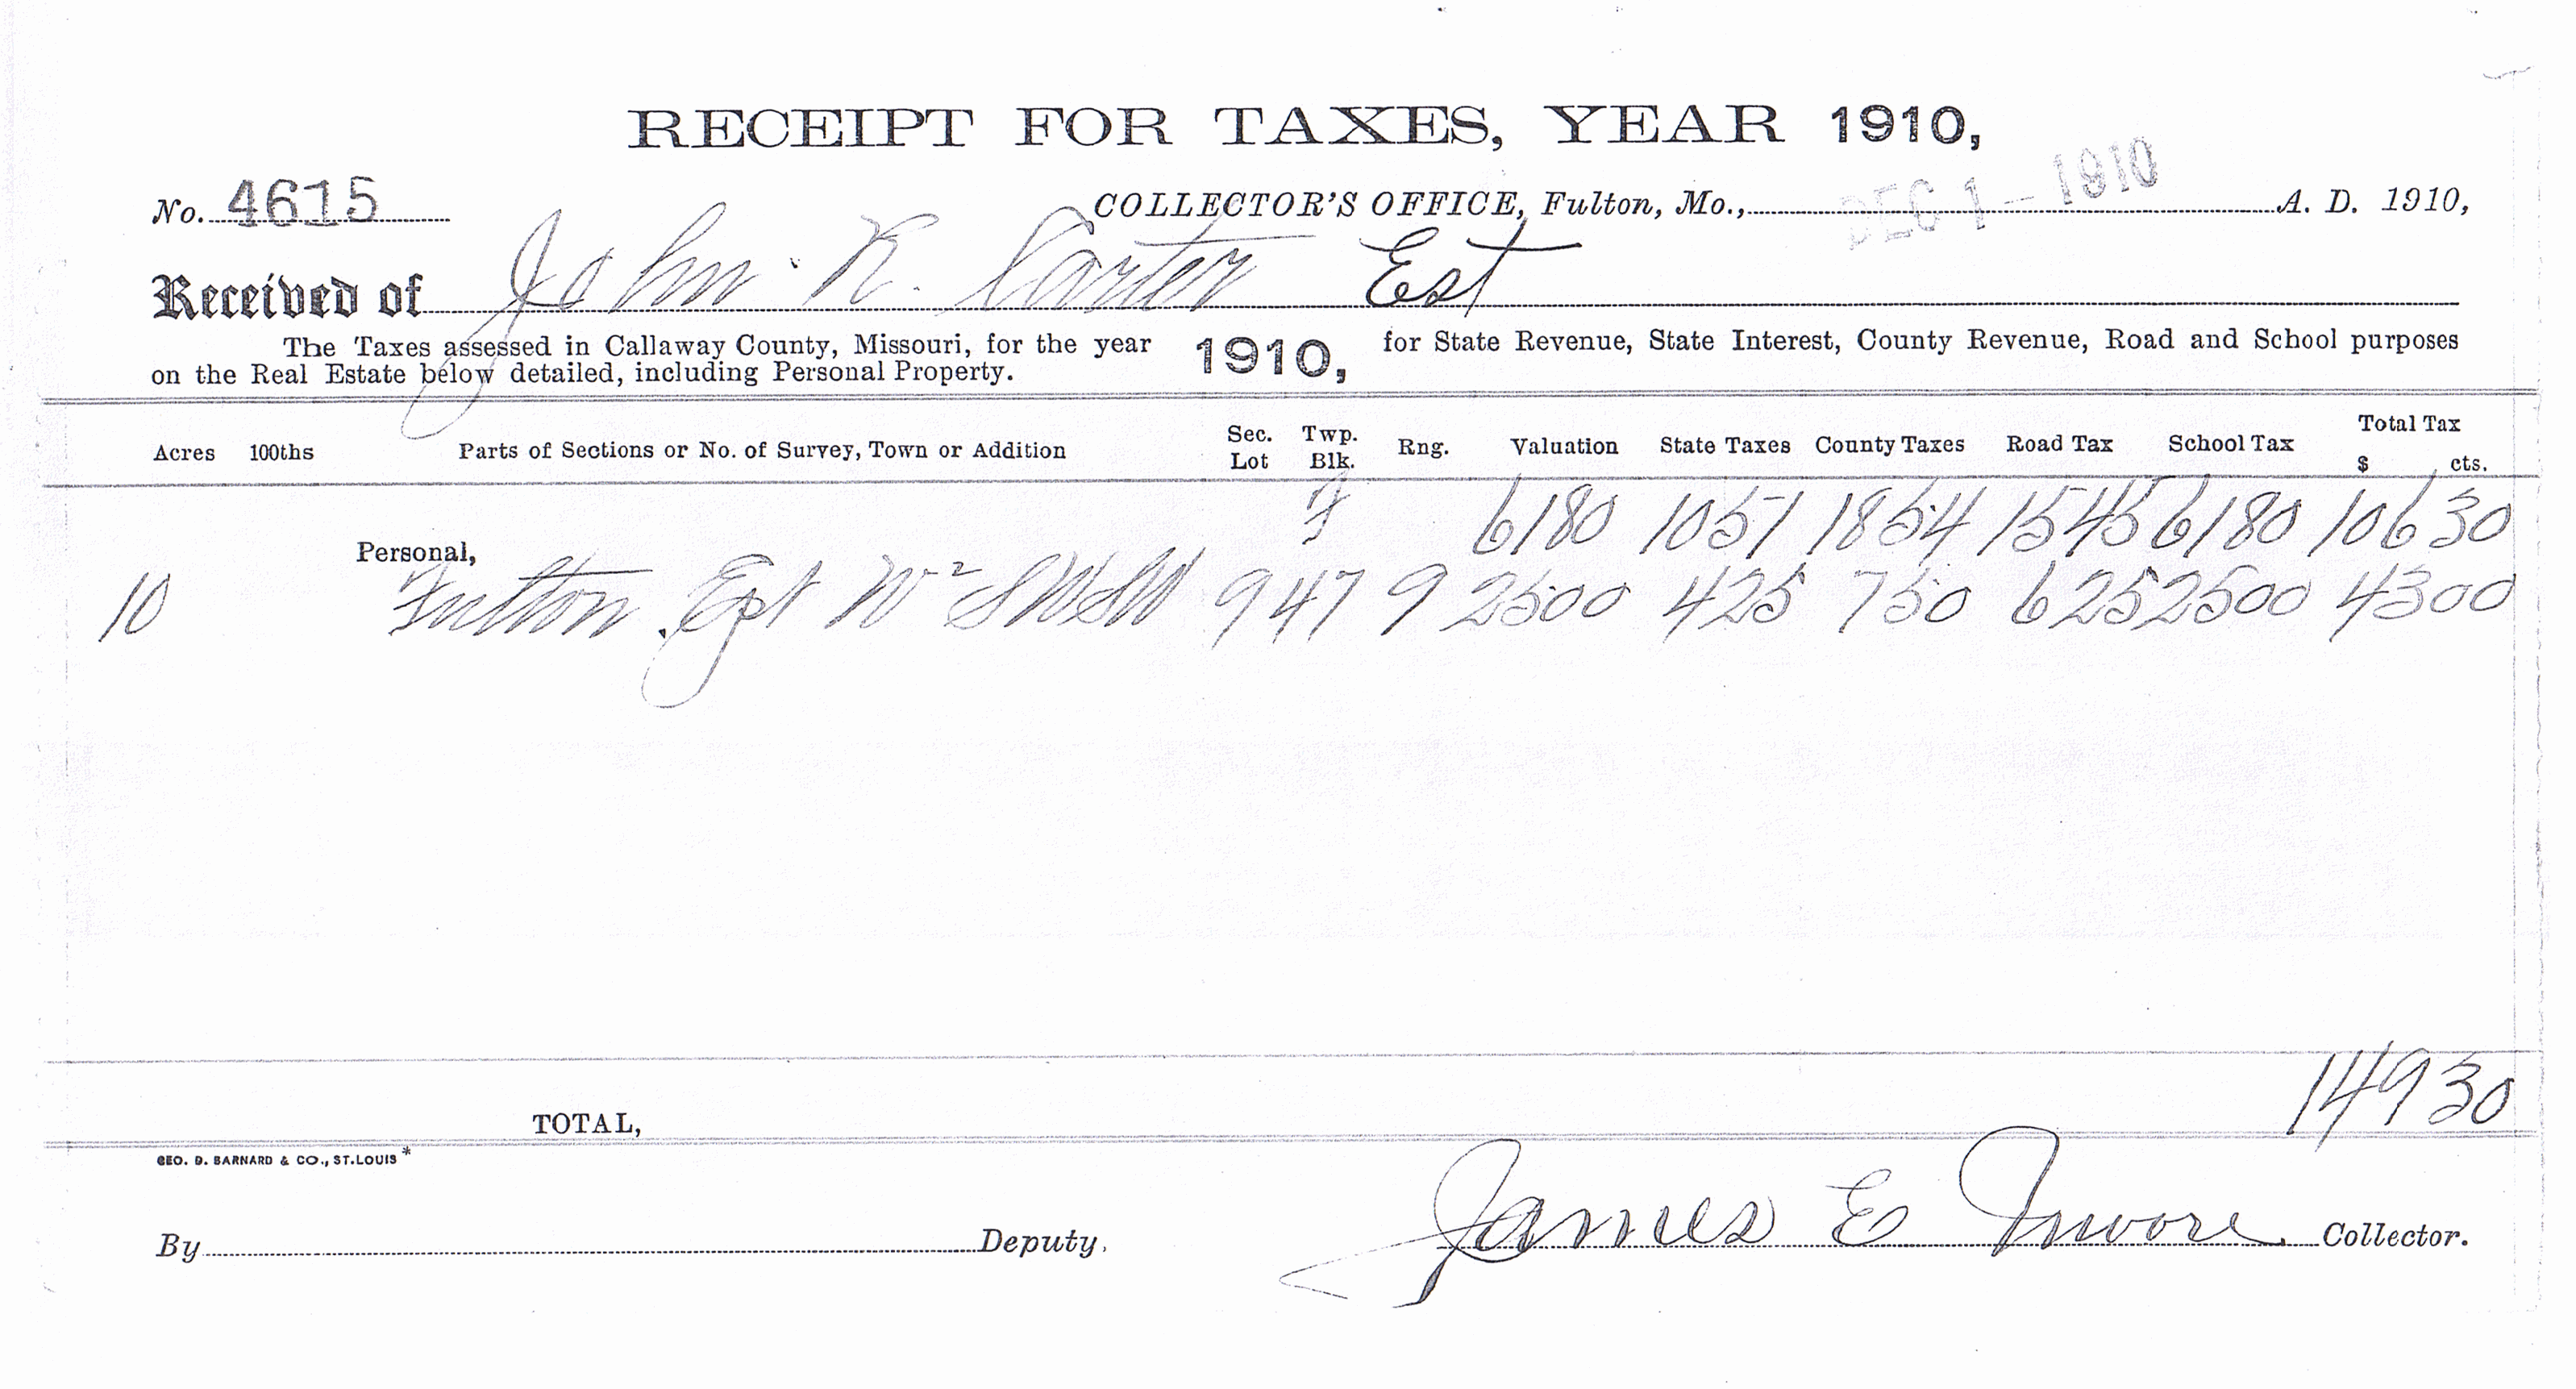 RECEIPT FOR TAXES, YEAR 1910,
No. 4615 COLLECTOR'S OFFICE, Fulton, Mo., DEC 1 - 1910 A. D. 1910,
Received of John R. Carter Est
The Taxes assessed in Callaway County, Missouri, for the year 1910, for State Revenue, State Interest, County Revenue, Road and School purposes
on the Real Estate below detailed, including Personal Property.
Acres 100ths Parts of Sections or No. of Survey, Town or Addition Sec. Lot Twp. Blk. Rng. Valuation State Taxes County Taxes Road Tax School Tax Total Tax $ cts.
Personal, 6180 1051 1854 1545 6180 106 30
10 Fulton Ept W² SWSW 9 47 9 2500 425 750 625 2500 43 00
TOTAL, 149 30
GEO. D. BARNARD & CO., ST. LOUIS *
By Deputy, James E Moore Collector.